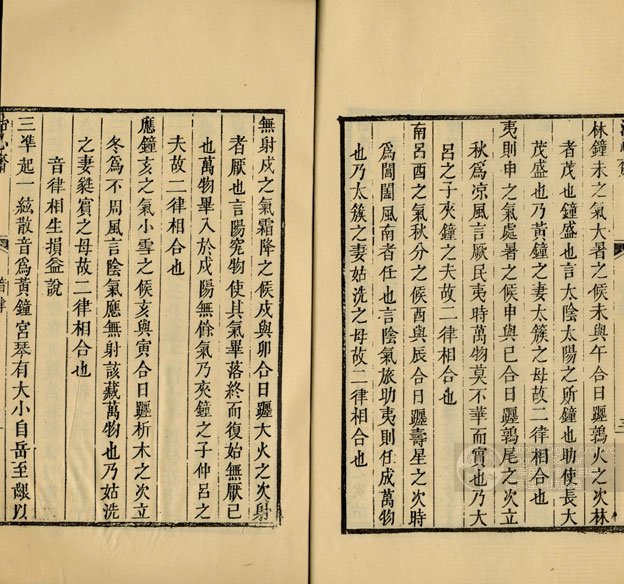 林鐘未之氣大暑之候未與午合日躔鶉火之次林
者茂也鐘盛也言太陰太陽之所鐘也助使長大
茂盛也乃黃鐘之妻太簇之母故二律相合也
夷則申之氣處暑之候申與巳合日躔鶉尾之次立
秋為涼風言厥民夷時萬物莫不華而實也乃大
呂之子夾鐘之夫故二律相合也
南呂酉之氣秋分之候酉與辰合日躔壽星之次時
為閶闔風南者任也言陰氣旅助夷則任成萬物
也乃太簇之妻姑洗之母故二律相合也
無射戌之氣霜降之候戌與卯合日躔大火之次射
者厭也言陽究物使其氣畢落終而復始無厭已
也萬物畢入於戌陽無餘氣乃夾鐘之子仲呂之
夫故二律相合也
應鐘亥之氣小雪之候亥與寅合日躔析木之次立
冬為不周風言陰氣應無射該藏萬物也乃姑洗
之妻蕤賓之母故二律相合也
音律相生損益說
三準起一絃散音為黃鐘宮琴有大小自岳至齦以